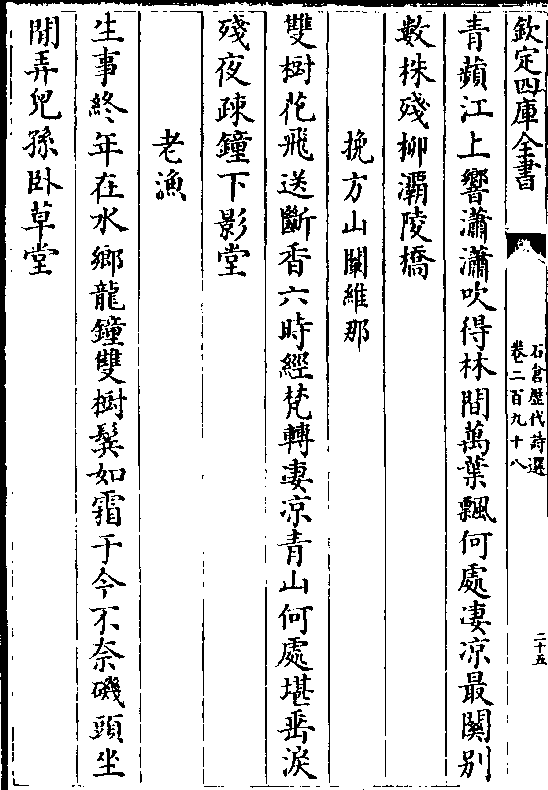 欽定四庫全書
石倉歷代詩選
卷二百九十八
二十五
青蘋江上響瀟瀟吹得林間萬葉飄何處凄涼最關别
數株殘柳灞陵橋
挽方山闡維那
雙樹花飛送斷香六時經梵轉凄涼青山何處堪垂淚
殘夜疎鐘下影堂
老漁
生事終年在水鄉龍鐘雙樹鬢如霜于今不奈磯頭坐
閒弄兒孫卧草堂